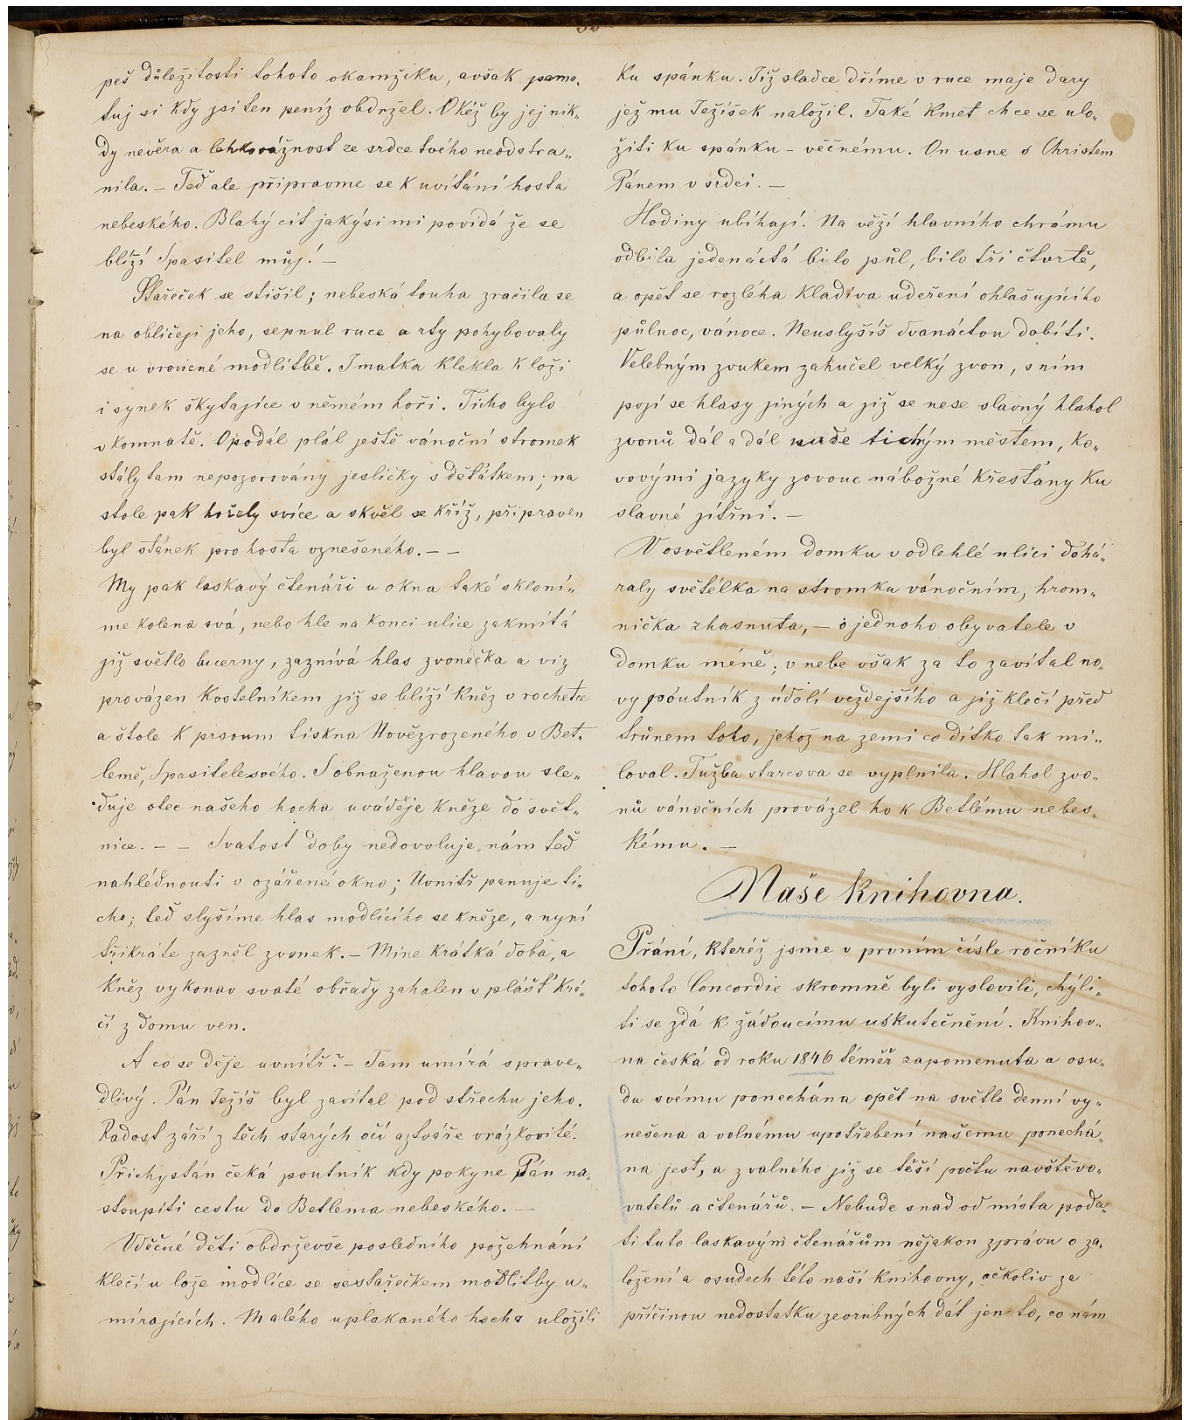 peš důležitosti tohoto okamžiku, avšak pama„
tuj si kdy jsi ten peníz obdržel. Okéž by jej nik„
dy nevěra a lehkovážnost ze srdce tvého neodstra„
nila. – Teď ale připravme se k uvítání hosta
nebeského. Blahý cit jakýsi mi povídá že se
blíží Spasitel můj! –
Stařeček se stišil; nebeská touha zračila se
na obličeji jeho, sepnul ruce a rty pohybovaly
se u vroucné modlitbě. I matka klekla k loži
i synek škytajíce v němém hoři. Ticho bylo
v komnatě. Opodál plál ještě vánoční stromek
stály tam nepozorovány jesličky s děťátkem; na
stole pak hořely svíce a skvěl se kříž, připraven
byl stánek pro hosta vznešeného. – –
My pak laskavý čtenáři u okna také skloní„
me kolena svá, nebo hle na konci ulice zakmitá
již světlo lucerny, zaznívá hlas zvonečka a viz
provázen kostelníkem již se blíží kněz v rochetě
a štole k prsoum tiskna Novězrozeného v Bet„
lemě, Spasitele svého. S obnaženou hlavou sle„
duje otec našeho hocha uváděje kněze do svět„
nice. – – Svatost doby nedovoluje nám teď
nahlédnouti v ozářené okno; Uvnitř panuje ti„
cho; teď slyšíme hlas modlícího se kněze, a nyní
třikráte zazněl zvonek. – Mine krátká doba, a
kněz vykonav svaté obřady zahalen v plášť krá„
čí z domu ven.
A co se děje uvnitř? – Tam umírá sprave„
dlivý. Pán Ježíš byl zavítal pod střechu jeho.
Radost září z těch starých očí a z tváře vrázkovité.
Přichystán čeká poutník kdy pokyne Pán na„
stoupiti cestu do Betlema nebeského. –
Vděčné děti obdrževše posledního požehnání
klečí u lože modlíce se se stařečkem modlitby u„
mírajících. Malého uplakaného hocha uložili
ku spánku. Již sladce dříme v ruce maje dary
jež mu Ježíšek naložil. Také kmet chce se ulo„
žiti ku spánku – věčnému. On usne s Christem
Pánem v srdci. –
Hodiny ubíhají. Na věži hlavního chrámu
odbila jedenáctá bilo půl, bilo tři čtvrtě,
a opět se rozléha kladiva udeření ohlašujícího
půlnoc, vánoce. Neuslyšíš dvanáctou dobíti.
Velebným zvukem zahučel velký zvon, s ním
pojí se hlasy jiných a již se nese slavný hlahol
zvonů dál a dál nade tichým městem, ko„
vovými jazyky zovouc nábožné křesťany ku
slavné jitřní. –
V osvětleném domku v odlehlé ulici dohá„
raly světélka na stromku vánočním, hrom„
nička zhasnuta, – o jednoho obyvatele v
domku méně; v nebe však za to zavítal no„
vý poutník z údolí vezdejšího a již klečí před
trůnem toho, jehož na zemi co dítko tak mi„
loval. Tužba starcova se vyplnila. Hlahol zvo„
nů vánočních provázel ho k Betlému nebes„
kému. –
Naše knihovna.
Přání, kteréž jsme v prvním čísle ročníku
tohoto Concordie skromně byli vyslovili, chýli„
ti se zdá k žádoucímu uskutečnění. Knihov„
na česká od roku 1846 téměř zapomenuta a osu„
du svému ponechána opět na světlo denní vy„
nešena a volnému upotřebení našemu ponechá„
na jest, a zvalného již se těší počtu navštěvo„
vatelů a čtenářů. – Nebude snad od místa poda„
ti tuto laskavým čtenářům nějakou zprávu o za„
ložení a osudech této naší knihovny, ačkoliv za
příčinou nedostatku zeorubných dát jen to, co nám